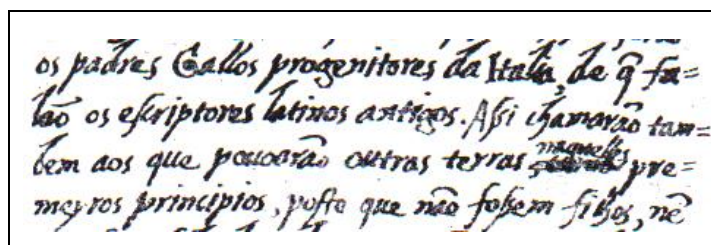 os padres Gallos progenitores da Italia, de q̃ fa=
lão os escriptores latinos antigos. Assi chamarão tam=
bem aos que povoarão outras terras naquelles pre=
meyros principios, posto que não fossem filhos, nẽ